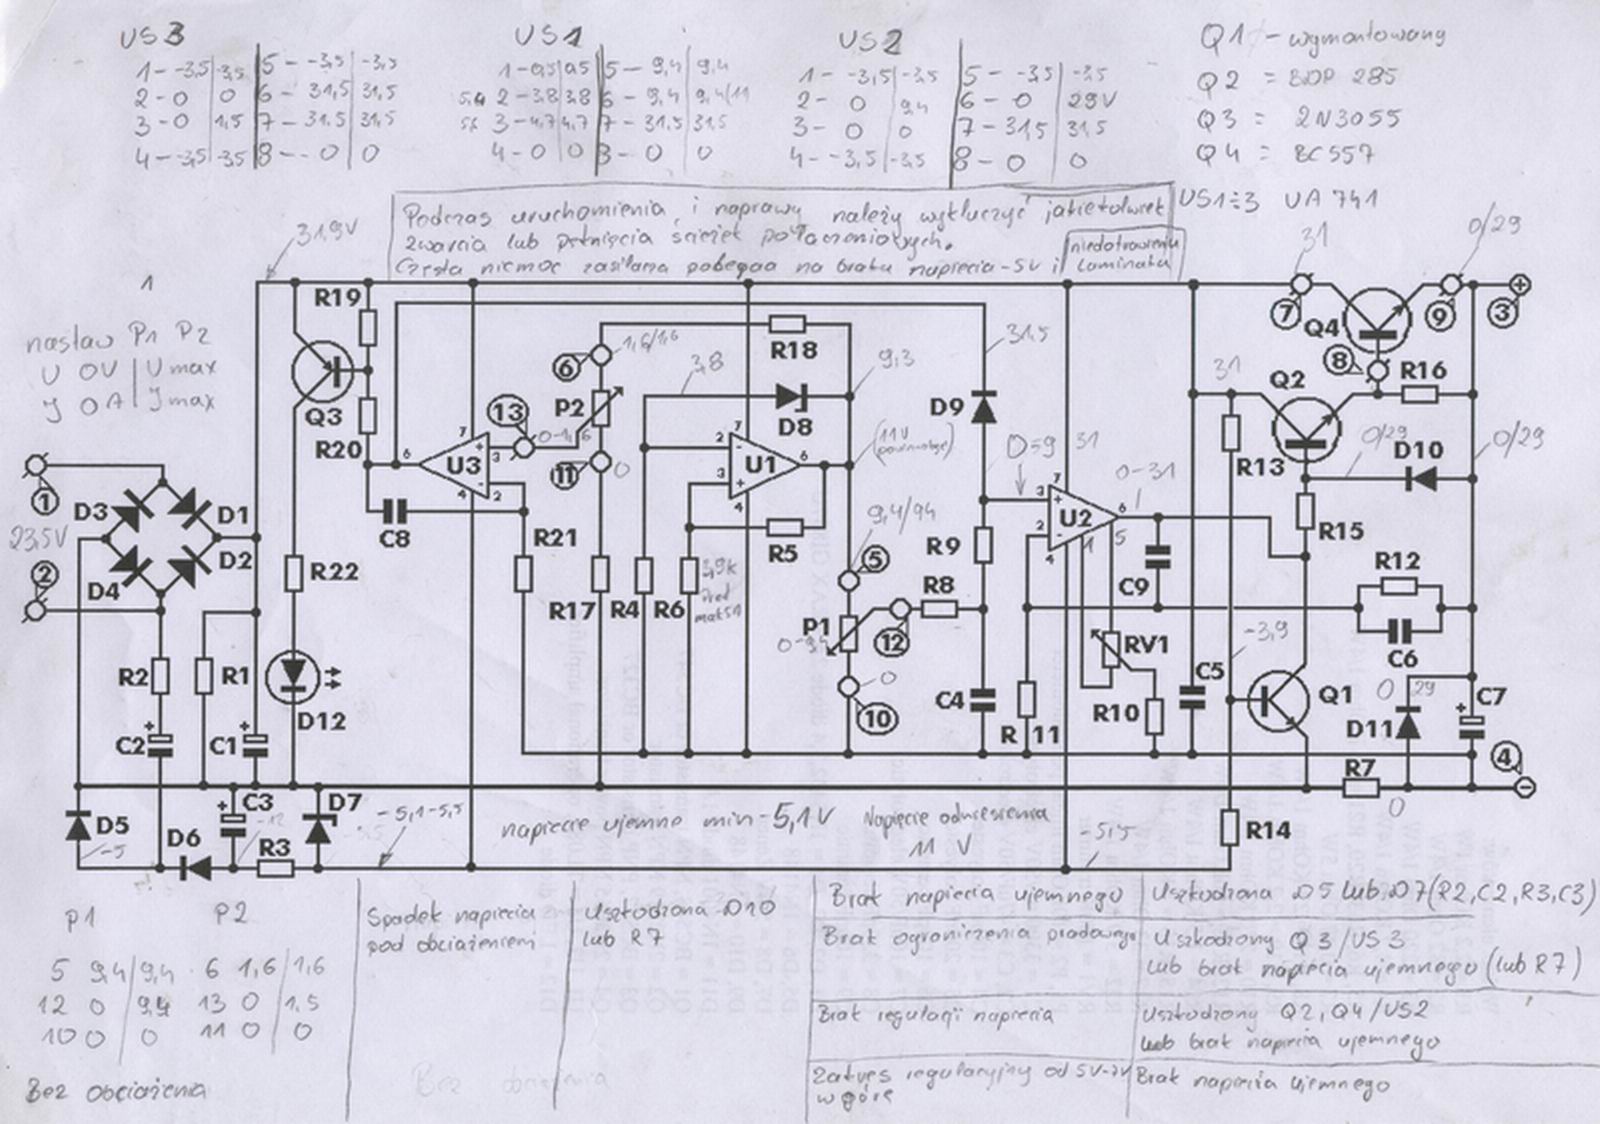 US3
1 - -3,5 | -3,5 | 5 - -3,5 | -3,5
2 - 0 | 0 | 6 - 31,5 | 31,5
3 - 0 | 1,5 | 7 - 31,5 | 31,5
4 - -3,5 | -3,5 | 8 - - 0 | 0
US1
1 - 0,5 | 0,5 | 5 - 9,4 | 9,4
2 - 3,8 | 3,8 | 6 - 9,4 | 9,4/11
3 - 4,7 | 4,7 | 7 - 31,5 | 31,5
4 - 0 | 0 | 8 - 0 | 0
US2
1 - -3,5 | -3,5 | 5 - -3,5 | -3,5
2 - 0 | 9,4 | 6 - 0 | 29V
3 - 0 | 0 | 7 - 31,5 | 31,5
4 - -3,5 | -3,5 | 8 - 0 | 0
Q1 - wymontowany
Q2 = BDP 285
Q3 = 2N3055
Q4 = BC557
US1÷3 UA 741
Podczas uruchomienia i naprawy należy wykluczyć jakiekolwiek
zwarcia lub pęknięcia ścieżek połączeniowych.
Częsta niemoc zasilacza polega na braku napięcia -5V i niedotrawieniu
laminatu
31,9V
1
nastaw P1 P2
U 0V | U max
J 0A | J max
31
0/29
R19
Q3
R20
C8
U3
7
6
4
3
2
+
-
13
0-1,6
6
1,6/1,6
P2
11
0
R18
3,8
D8
9,3
(11V
U1
2
3
7
6
4
R5
R21
R17
R4
R6
3,9k
9,4/9,4
5
P1
12
0
10
R8
D9
31,5
R9
C4
31
0-31
U2
3
2
7
6
4
1
5
C9
RV1
R10
R 11
C5
7
Q4
8
9
3
R16
31
Q2
R13
R15
0/29
D10
0/29
R12
C6
-3,9
Q1
0 29
D11
C7
R7
0
4
R14
1
23,5V
2
D3
D1
D4
D2
R2
R1
C2
C1
R22
D12
D5
-5
D6
C3
-12
R3
D7
-5,1 -5,5
napięcie ujemne min -5,1V
Napięcie odniesienia
11 V
-5,5
P1 P2
5 9,4/9,4 6 1,6/1,6
12 0 9,4 13 0 1,5
10 0 0 11 0 0
Bez obciążenia
Spadek napięcia
pod obciążeniem
Uszkodzona D10
lub R7
Brak napięcia ujemnego
Uszkodzona D5 lub D7(R2,C2,R3,C3)
Brak ograniczenia prądowego
Uszkodzony Q3/US3
lub brak napięcia ujemnego (lub R7)
Brak regulacji napięcia
Uszkodzony Q2, Q4/US2
lub brak napięcia ujemnego
Zakres regulacyjny od 5V-7V
w górę
Brak napięcia ujemnego
Bez obciążenia